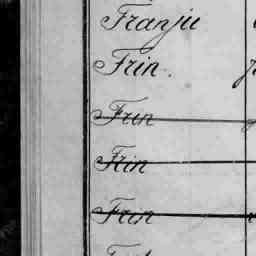 Franju
Frin.
Frin
Frin
Frin